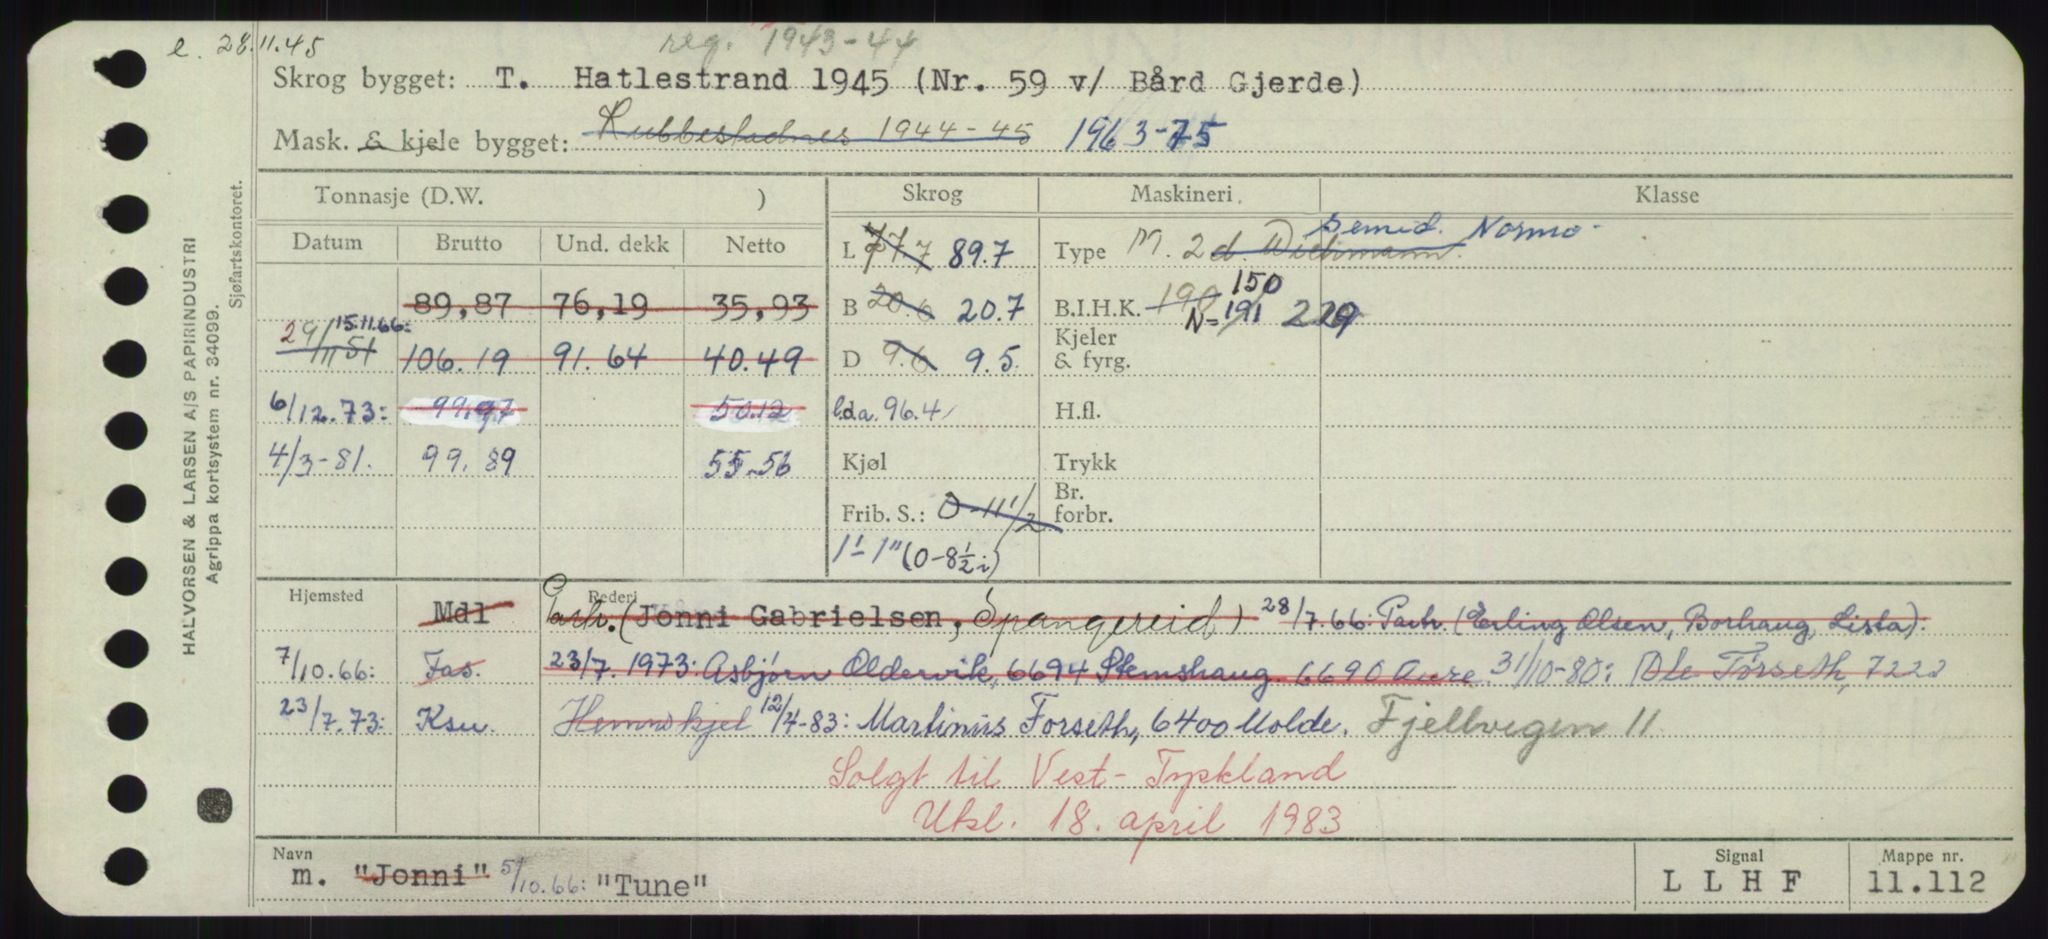 e. 28.11.45
reg. 1943-44
Skrog bygget: T. Hatlestrand 1945 (Nr. 59 v/ Bård Gjerde)
Mask. & kjele bygget: Rubbestadnes 1944-45 1963-75
Tonnasje (D.W. ) Skrog Maskineri Klasse
Datum Brutto Und. dekk Netto
L 77.7 89.7 Type M. 2d. Wichmann. semid. Normo
89,87 76,19 35,93
B 20.6 20.7 B.I.H.K. 190 150 N-191 229
29/11 51 15.11.66: 106.19 91.64 40.49
D 9.6 9.5 Kjeler & fyrg.
6/12.73: 99.97 50.12
l.d.a. 96.4 H.fl.
4/3-81. 99.89 55.56
Kjøl Trykk
Frib. S.: 0-11 1/2 Br. forbr.
1'-1" (0-8 1/2 i)
Hjemsted Rederi
Mdl Partr. (Jonni Gabrielsen, Spangereid) 28/7.66: Partr. (Erling Olsen, Borhaug, Lista).
7/10.66: Fas. 23/7.1973: Asbjørn Oldervik, 6694 Stemshaug 6690 Aure 31/10-80: Ole Forseth, 7222
23/7.73: Ksu. Hemnskjel 12/4-83: Martinus Forseth, 6400 Molde. Fjellvegen 11
Solgt til Vest-Tyskland
Utsl. 18. april 1983
Navn Signal Mappe nr.
m. "Jonni" 5/10.66: "Tune" LLHF 11.112
HALVORSEN & LARSEN A/S PAPIRINDUSTRI
Agrippa kortsystem nr. 34099.
Sjøfartskontoret.